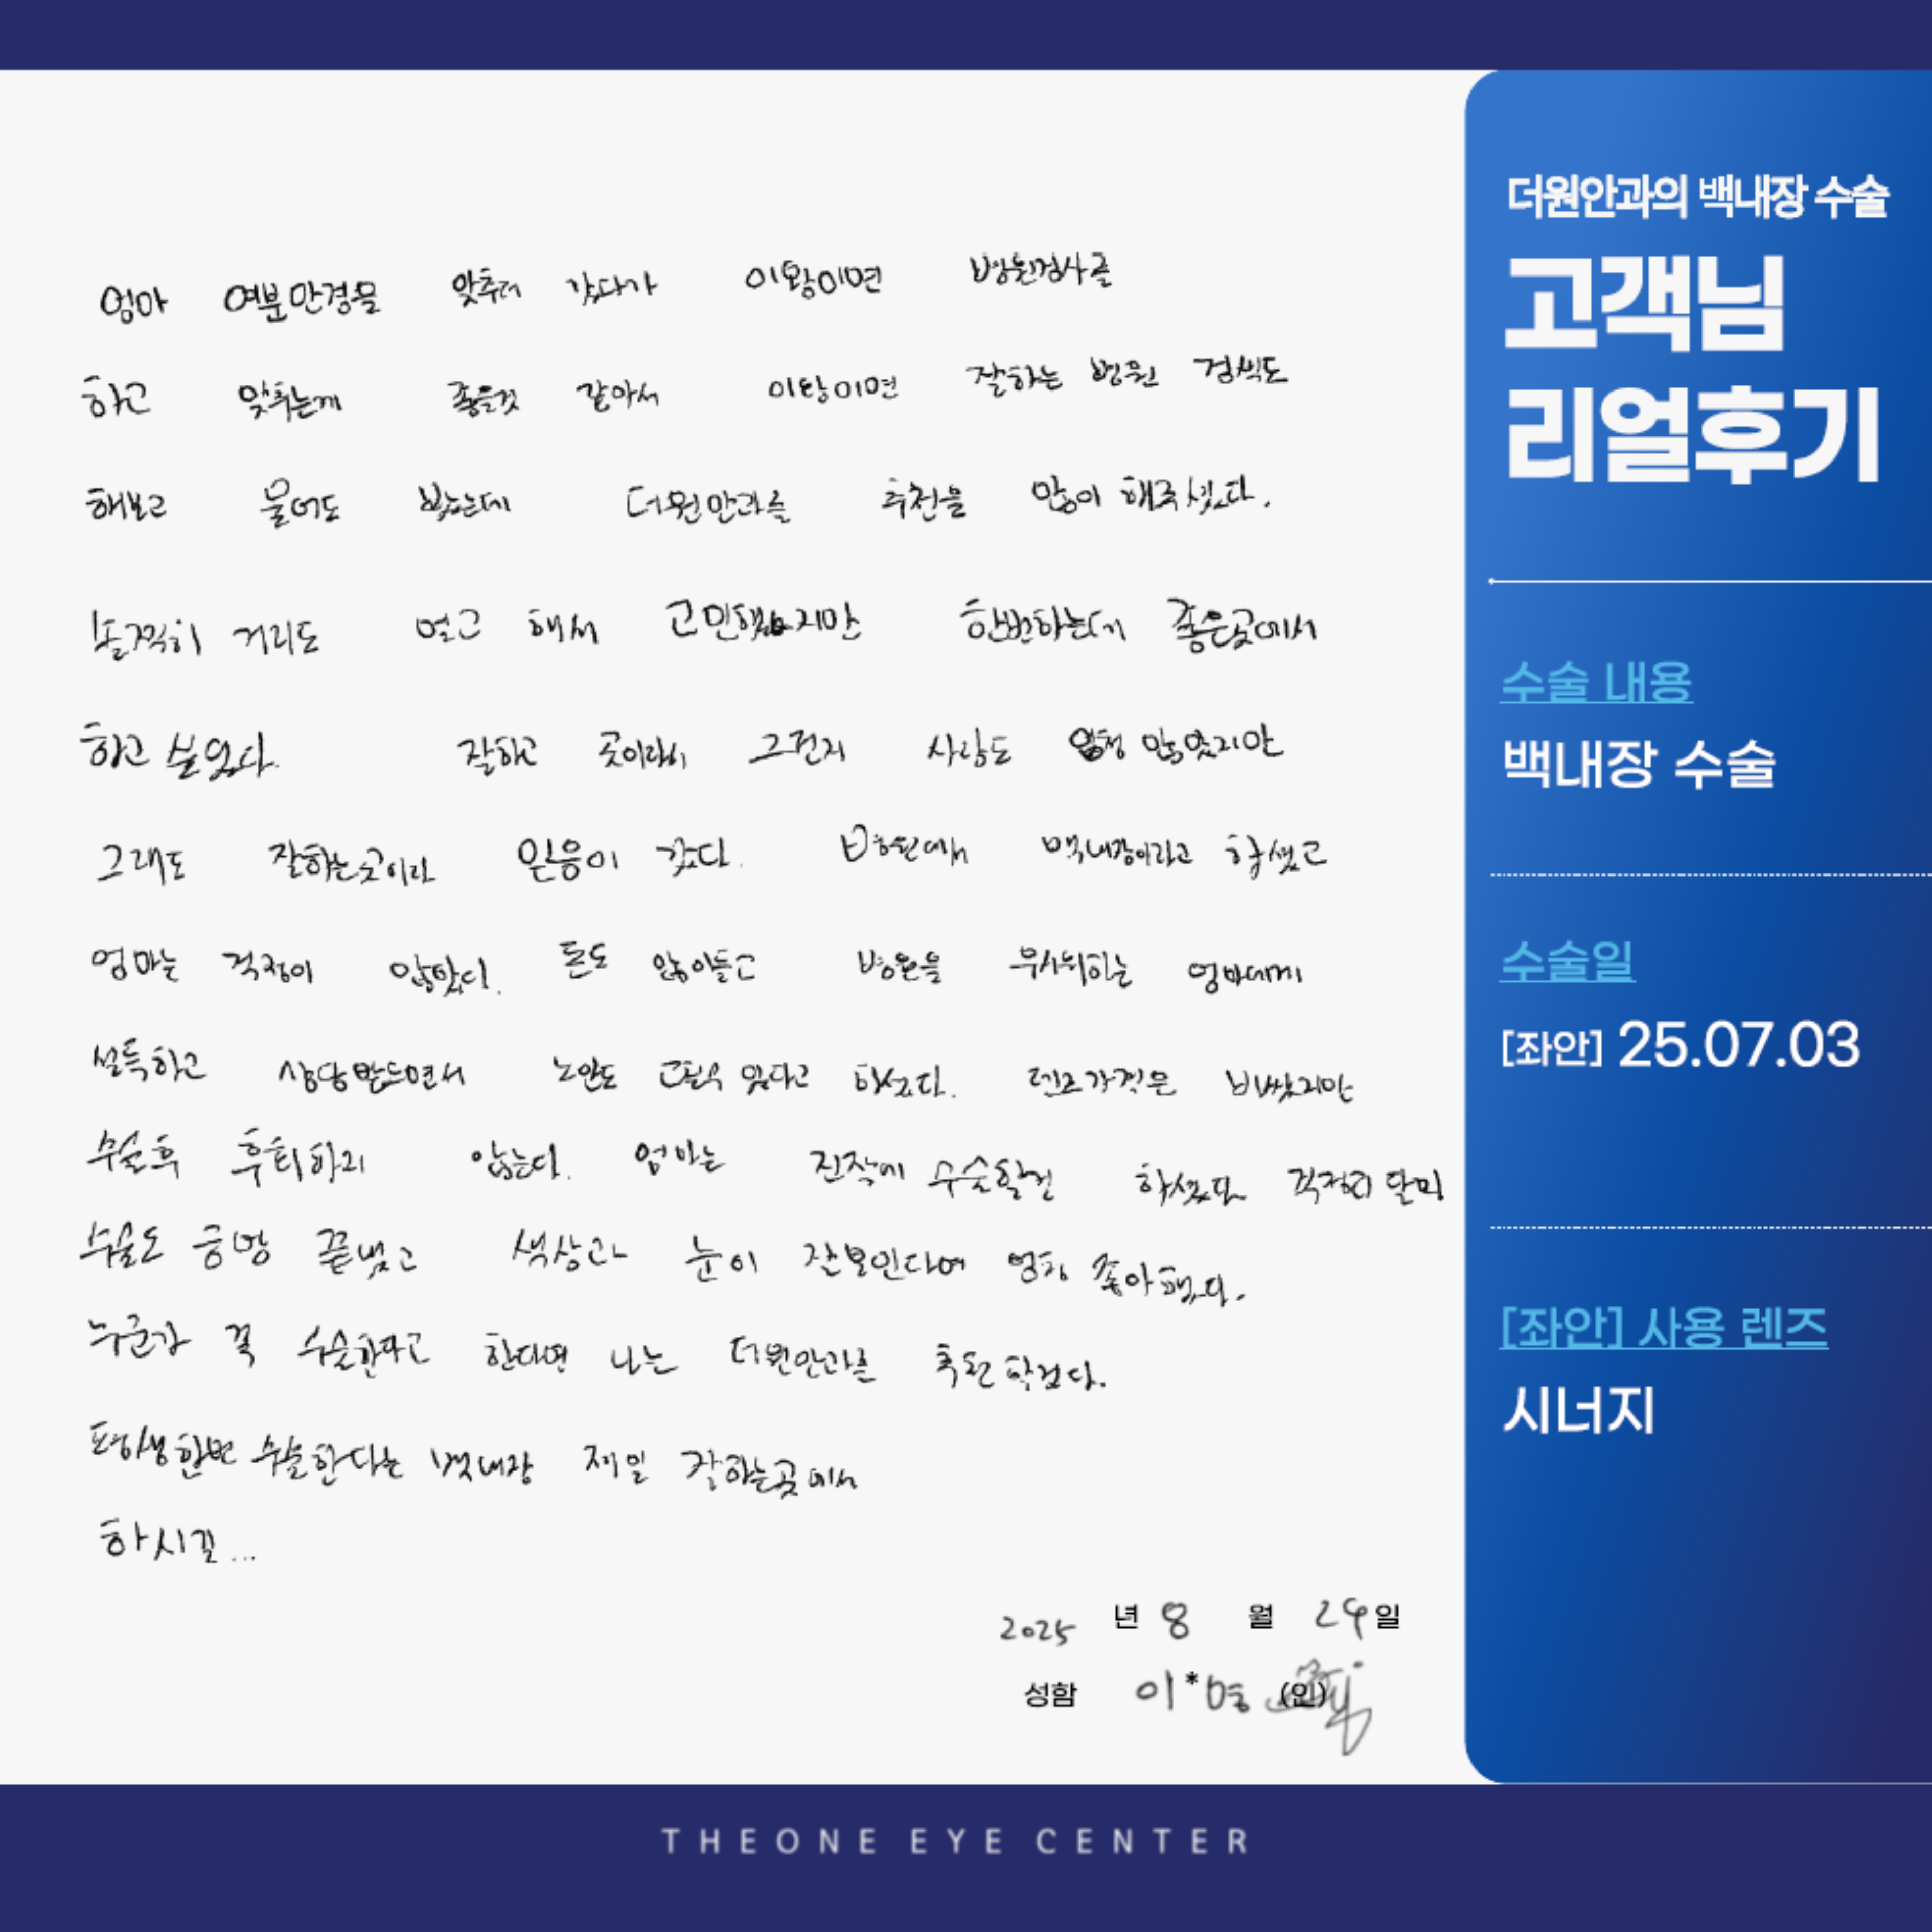 엄마 여분안경을 맞추러 갔다가 이왕이면 병원검사를
하고 맞추는게 좋을것 같아서 이왕이면 잘하는 병원 검색도
해보고 물어도 봤는데 더원안과를 추천을 많이 해주셨다.
솔직히 거리도 멀고 해서 고민했지만 한번하는데 좋은곳에서
하고 싶었다. 잘하고 곳이라서 그런지 사람도 엄청 많았지만
그래도 잘하는곳이라 믿음이 갔다. 병원에서 백내장이라고 하셨고
엄마는 걱정이 많았다. 돈도 많이들고 병원을 무서워하는 엄마에게
설득하고 상담받으면서 노안도 할수 있다고 하셨다. 렌즈가격은 비쌌지만
수술후 후회하지 않는다. 엄마는 진작에 수술할걸 하셨다 걱정과 달리
수술도 금방 끝났고 색상과 눈이 잘보인다며 엄청 좋아했다.
누군가 꼭 수술한다고 한다면 나는 더원안과를 추천할거다.
평생한번 수술한다는 백내장 제일 잘하는곳에서
하시길...
2025 년 8 월 29일
성함 이*영 (인)
더원안과의 백내장 수술
고객님
리얼후기
수술 내용
백내장 수술
수술일
[좌안] 25.07.03
[좌안] 사용 렌즈
시너지
THEONE EYE CENTER